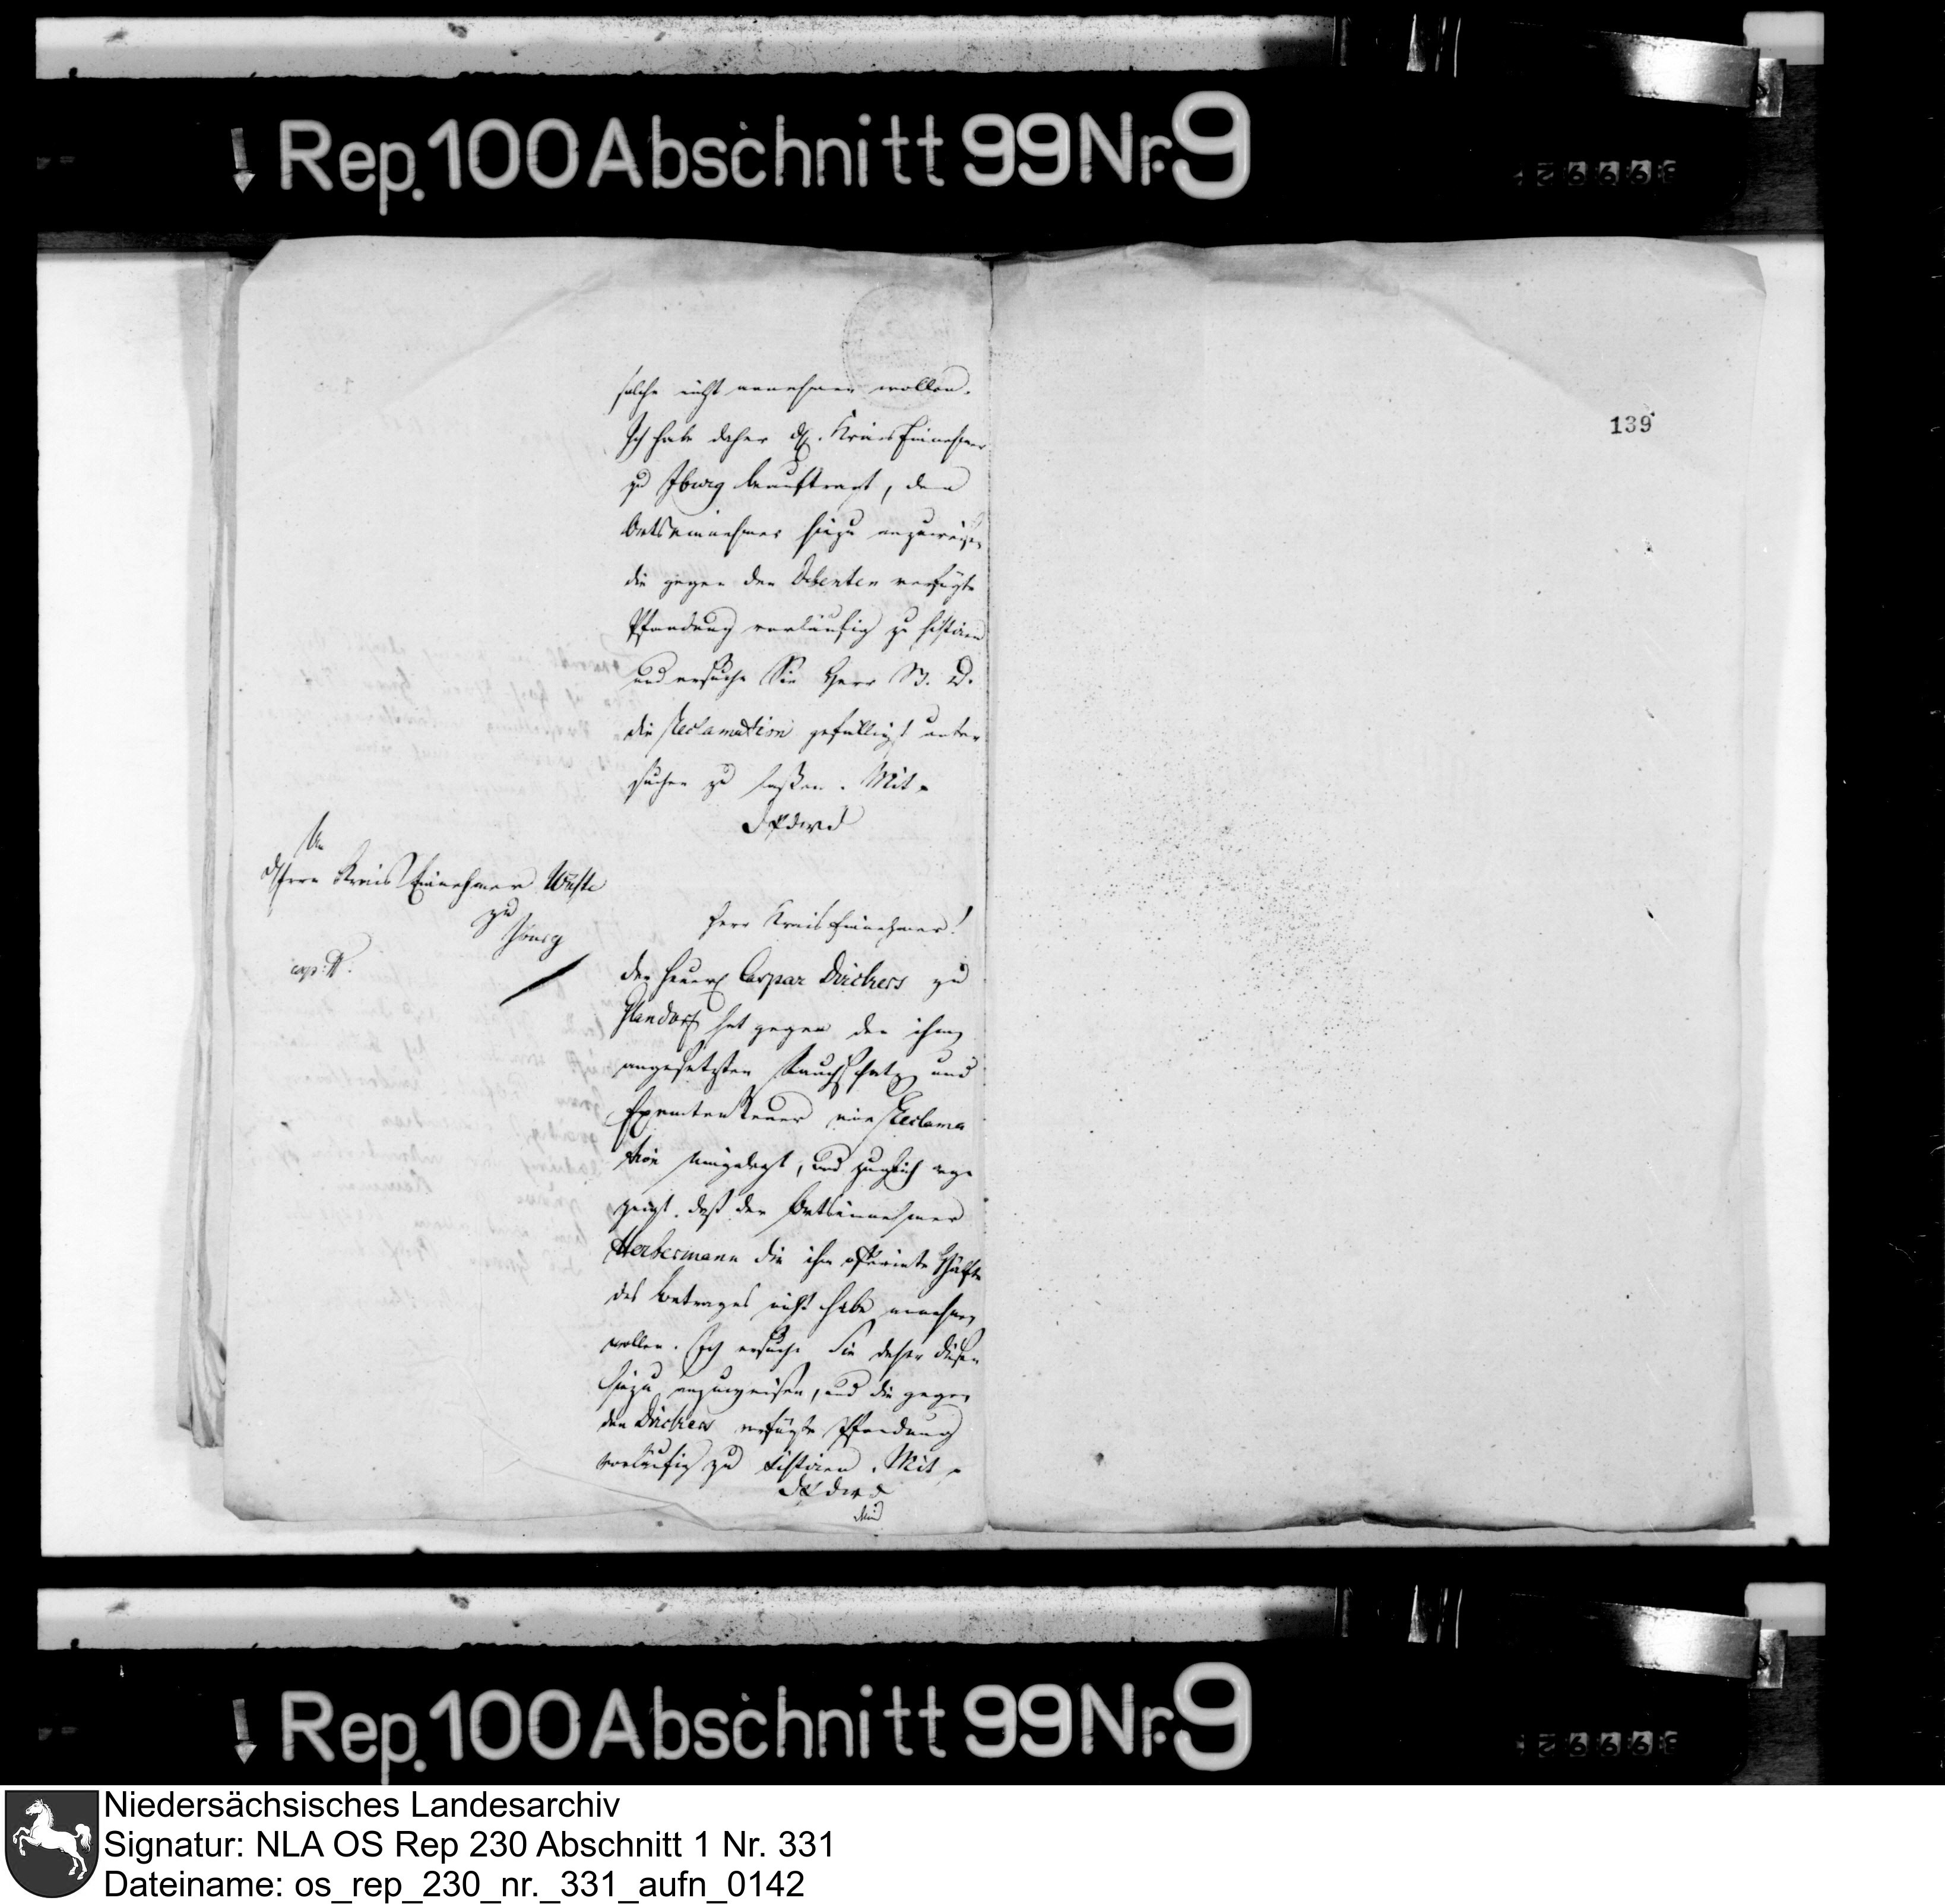 Rep. 100 Abschnitt 99 Nr. 9
139
solche nicht annehmen wollen.
Ich habe daher d. Kreis Einnehmer
zu Iburg beauftragt, den
Ortseinnehmer hiezu anzuweisen
die gegen den Debenten verfügte
Pfandung vorläufig zu sistiren
und ersuche Sie Herr
die Reclamation gefälligst unter
suchen zu laßen. Mit
An
d Herrn Kreis Einnehmer Wüste
zu
Iburg
Herr Kreis Einnehmer!
der Heuerl Caspar Dirckers zu
Glandorf hat gegen den ihm
angesetzten Rauchschatz und
Exemtensteuer eine Reclama
tion eingelegt, und zugleich ange
zeigt, daß der Ortseinnehmer
Herbermann die ihm offerirte Hälfte
des Betrages nicht habe annehmen
wollen. Ich ersuche Sie daher diesen
hiezu anzuweisen, und die gegen
den Dirckers verfügte Pfandung
vorläufig zu sistiren. Mit
Rep. 100 Abschnitt 99 Nr. 9
Niedersächsisches Landesarchiv
Signatur: NLA OS Rep 230 Abschnitt 1 Nr. 331
Dateiname: os_rep_230_nr._331_aufn_0142